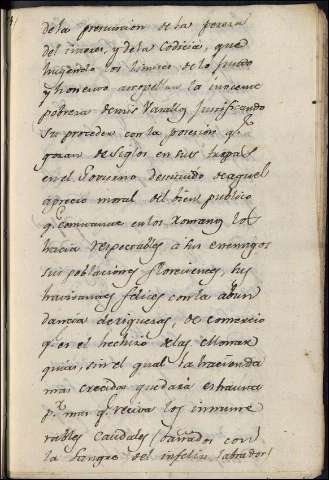 de la presuncion de la pereza
del interes, y de la Codicia, que
huyendo los limites de lo justo
y honesto atropellan la inocente
pobreza de mis Vasallos Justificando
su proceder con la posesion q.
gozan de Siglos en sus
en el Govierno desnuido de aquel
aprecio moral del bien publico
q. en los Romanos los
hacia respectables a sus enemigos
sus poblaciones florecientes, sus
havitantes felices con la abun
dancia de riquezas, de comercio
q. es el hechizo de las Monar
quias, sin el qual la hacienda
mas crecida quedará exhausta
p.r mas q. reciva los innume
rables Caudales (bañados con
la Sangre del infeliz labrador)